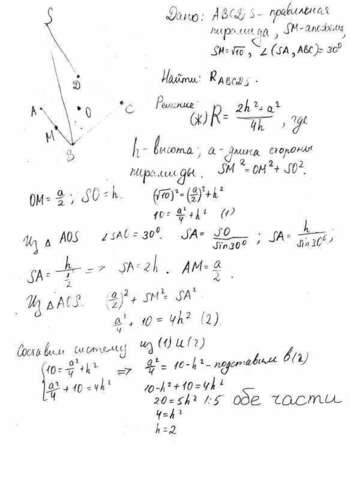 Дано: ABCD,S - правильная
пирамида, SM - апофема,
SM=√10, ∠(SA, ABC)=30°
Найти: R ABCDS.
Решение
(*) R = 2h²+a² / 4h, где
h - высота; a - длина стороны
пирамиды. SM² = OM² + SO².
S
D
A
O
C
M
B
OM = a/2; SO = h.
(√10)² = (a/2)² + h²
10 = a²/4 + h² (1)
Из △ AOS ∠SAO = 30°. SA = SO/sin30°; SA = h/sin30°,
SA = h/(1/2) => SA = 2h. AM = a/2.
Из △ AOS. (a/2)² + SM² = SA²
a²/4 + 10 = 4h² (2)
Составим систему из (1) и (2)
{10 = a²/4 + h² => a²/4 = 10 - h² - подставим в (2)
{a²/4 + 10 = 4h² 10 - h² + 10 = 4h²
20 = 5h² |:5 обе части
4 = h²
h = 2